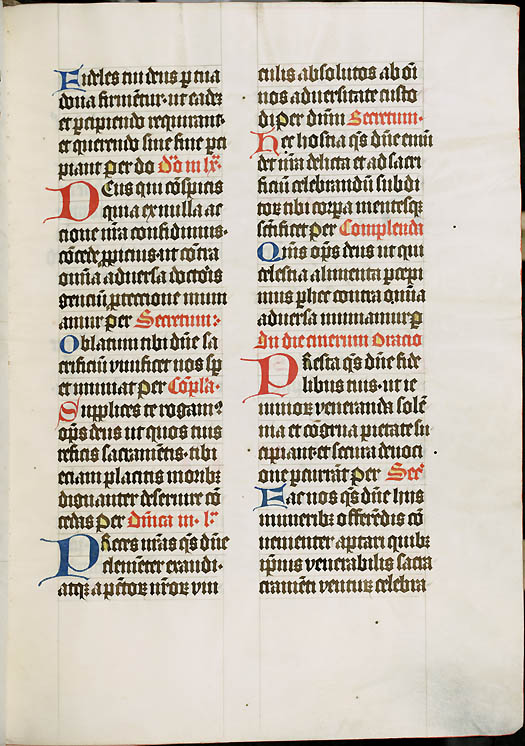 Fideles tui deus p tua
dona firment᷑ · ut eadẽ
et ꝑcipiendo requirant ·
et querendo sine fine ꝑci
piant Per do Dõ in lxͣ ·
Deus qui cõspicis
quia ex nulla ac
tione nr̃a confidimus ·
cõcede ꝓpicius · ut cõtra
om̃ia aduersa doctoris
genciũ ꝓtectione muni
amur Per Secretum :
Oblatum tibi dñe sa
crificiũ uiuificet nos sꝑ
et muniat Per Cõpla ·
Supplices te rogam᷒
op̃s deus ut quos tuis
reficis sacramẽtis · tibi
eciam placitis moribꝫ
dignanter deseruire cõ
cedas Per Dñica in · lͣ ·
Preces nr̃as q̃s dñe
clemẽter exaudi ·
atqꝫ a pctõꝝ nr̃oꝝ vin
culis absolutos ab oĩ
nos aduersitate custo
di Per dñm Secretum ·
Hec hostia q̃s dñe emũ
det nr̃a delicta et ad sacri
ficiũ celebrandũ subdi
toꝝ tibi corpa mentesqꝫ
sc̃ificet Per Complenda
Om̃s op̃s deus ut qui
celestia alimenta ꝑcepi
mus ꝑ hec contra om̃ia
aduersa muniamur P
In die cinerum Oracio
Presta q̃s dñe fide
libus tuis · ut ie
iunioꝝ veneranda solẽ
nia et cõgrua pietate su
scipiant et secura deuoci
one ꝑcurrãt Per Sec̃
Fac nos q̃s dñe hiis
muneribꝫ offerẽdis cõ
uenienter aptari quibꝫ
ip̃ius venerabilis sacra
cramenti ventur celebra